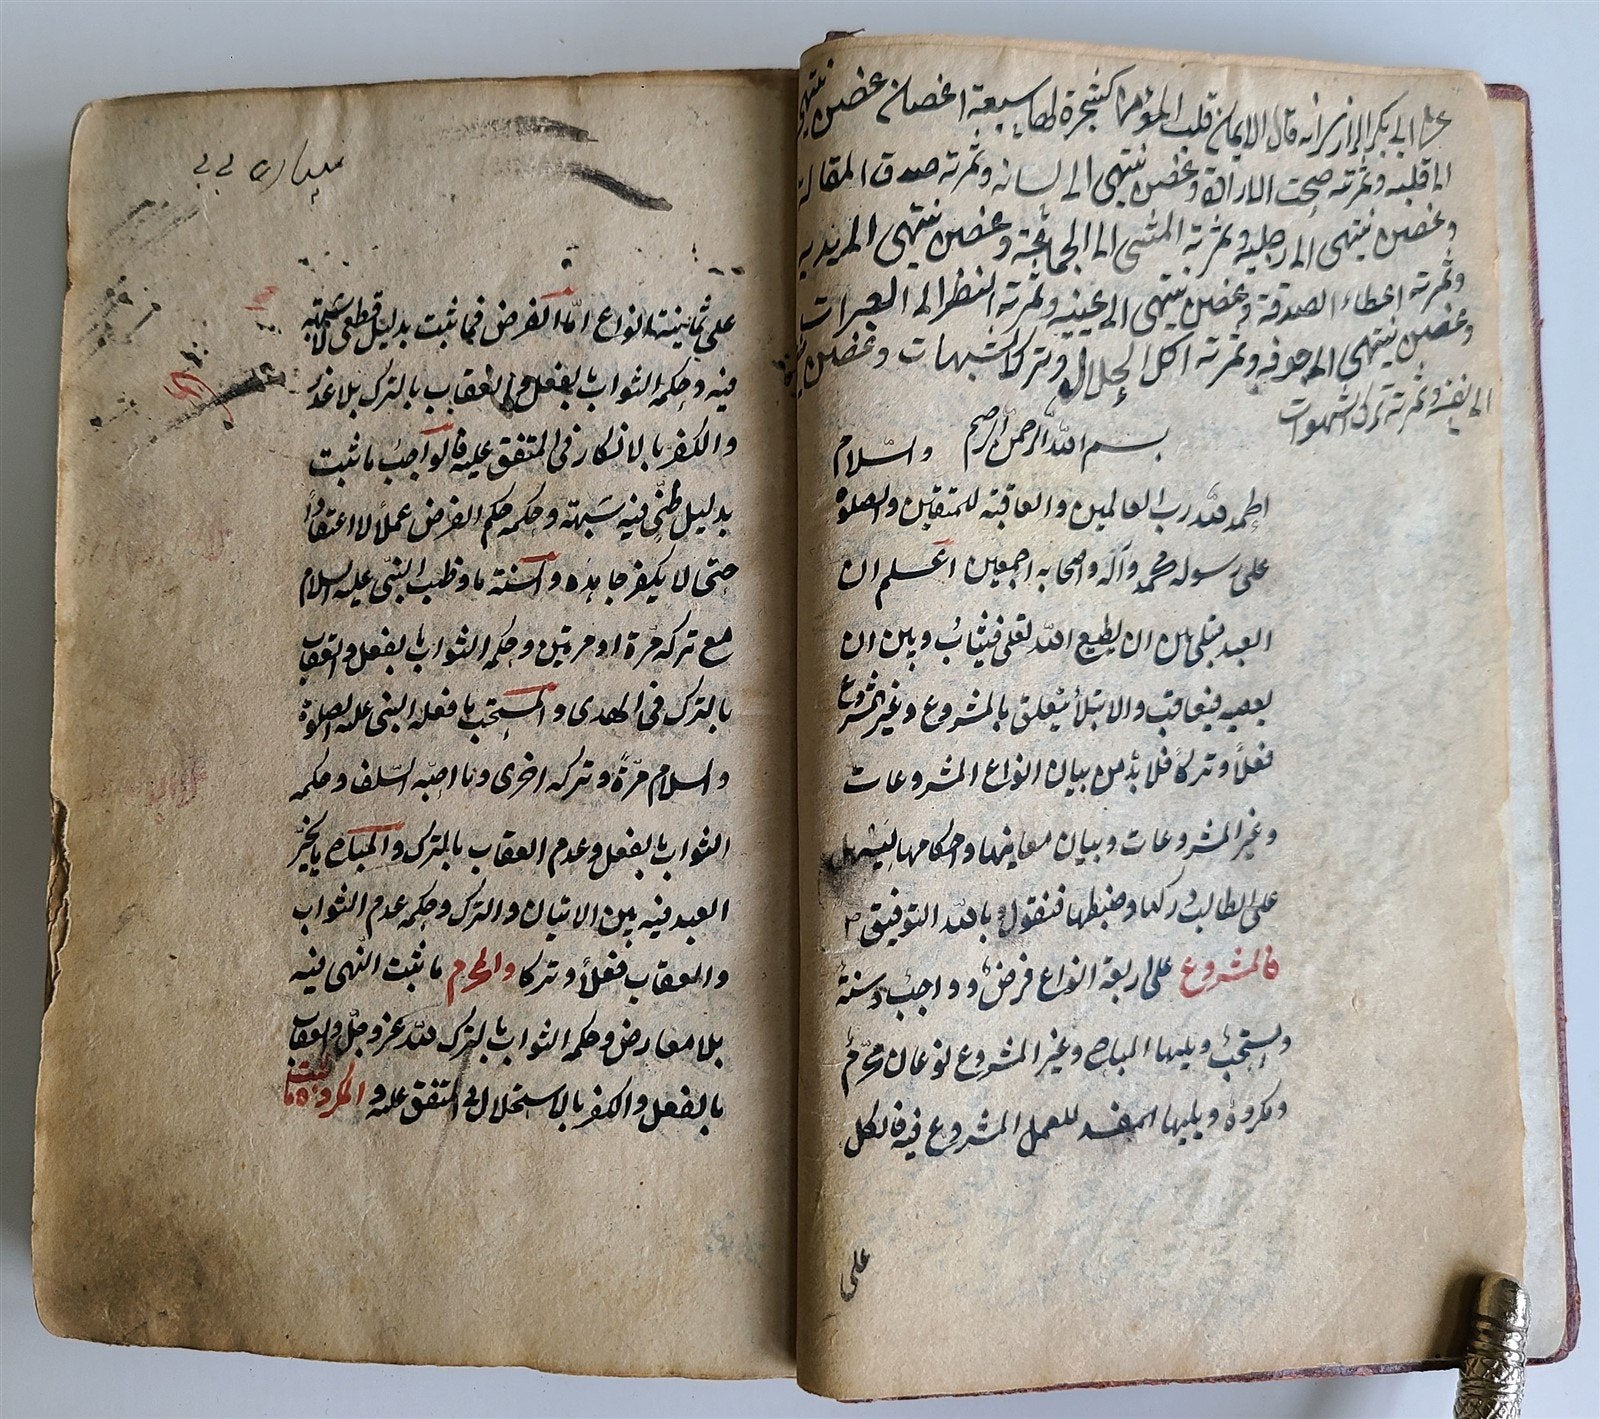 على ابي بكر الرازي انه قال الايمان قلب المؤمن كشجرة لها سبعة اغصان غصن ينتهي
الى قلبه وثمرته صحت الارادة وغصن ينتهي الى لسانه وثمرته صدق المقالة
وغصن ينتهي الى رجليه وثمرته المشى الى الجماعة وغصن ينتهي الى يديه
وثمرته اعطاء الصدقة وغصن ينتهي الى عينيه وثمرته النظر الى العبرات
وغصن ينتهي الى جوفه وثمرته اكل الحلال وترك الشبهات وغصن
الى نفسه وثمرته ترك الشهوات
بسم الله الرحمن الرحيم
الحمد لله رب العالمين والعاقبة للمتقين والصلوة والسلام
على رسوله محمد وآله واصحابه اجمعين اعلم ان
العبد مبتلى بين ان يطيع الله تعلى فيثاب وبين ان
يعصيه فيعاقب والابتلأ يتعلق بالمشروع وغير المشروع
فعلاً وتركاً فلا بد من بيان انواع المشروعات
وغير المشروعات وبيان معانيها واحكامها ليسهل
على الطالب دركها وضبطها فنقول بالله التوفيق
فالمشروع على اربعة انواع فرض وواجب وسنة
ومستحب ويليها المباح وغير المشروع نوعان محرم
ومكروه ويليها المفسد للعمل المشروع فيه فالكل
على
على ثمانية انواع امّا الفرض فما ثبت بدليل قطعي لا شبهة
فيه وحكمه الثواب بالفعل والعقاب بالترك بلا عذر
والكفر بالانكار في المتفق عليه فالواجب ما ثبت
بدليل ظنّي فيه شبهته وحكمه حكم الفرض عملاً لا اعتقاداً
حتى لا يكفر جاهده والسنة ما وظب النبي عليه السلام
مع تركه مرّة او مرتين وحكمه الثواب بالفعل والعقاب
بالترك في الهدى والمستحب ما فعله النبي عليه الصلوة
والسلام مرّةً وتركه اخرى وما احبّه السّلف وحكمه
الثواب بالفعل وعدم العقاب بالترك والمباح ما يخيّر
العبد فيه بين الاتيان والترك وحكمه عدم الثواب
والعقاب فعلاً وتركا والمحرم ما ثبت النّهى فيه
بلا معارض وحكمه الثواب بالترك لله عز وجلّ والعقاب
بالفعل والكفر بالاستحلال في المتفق عليه والمكروه ما ثبت